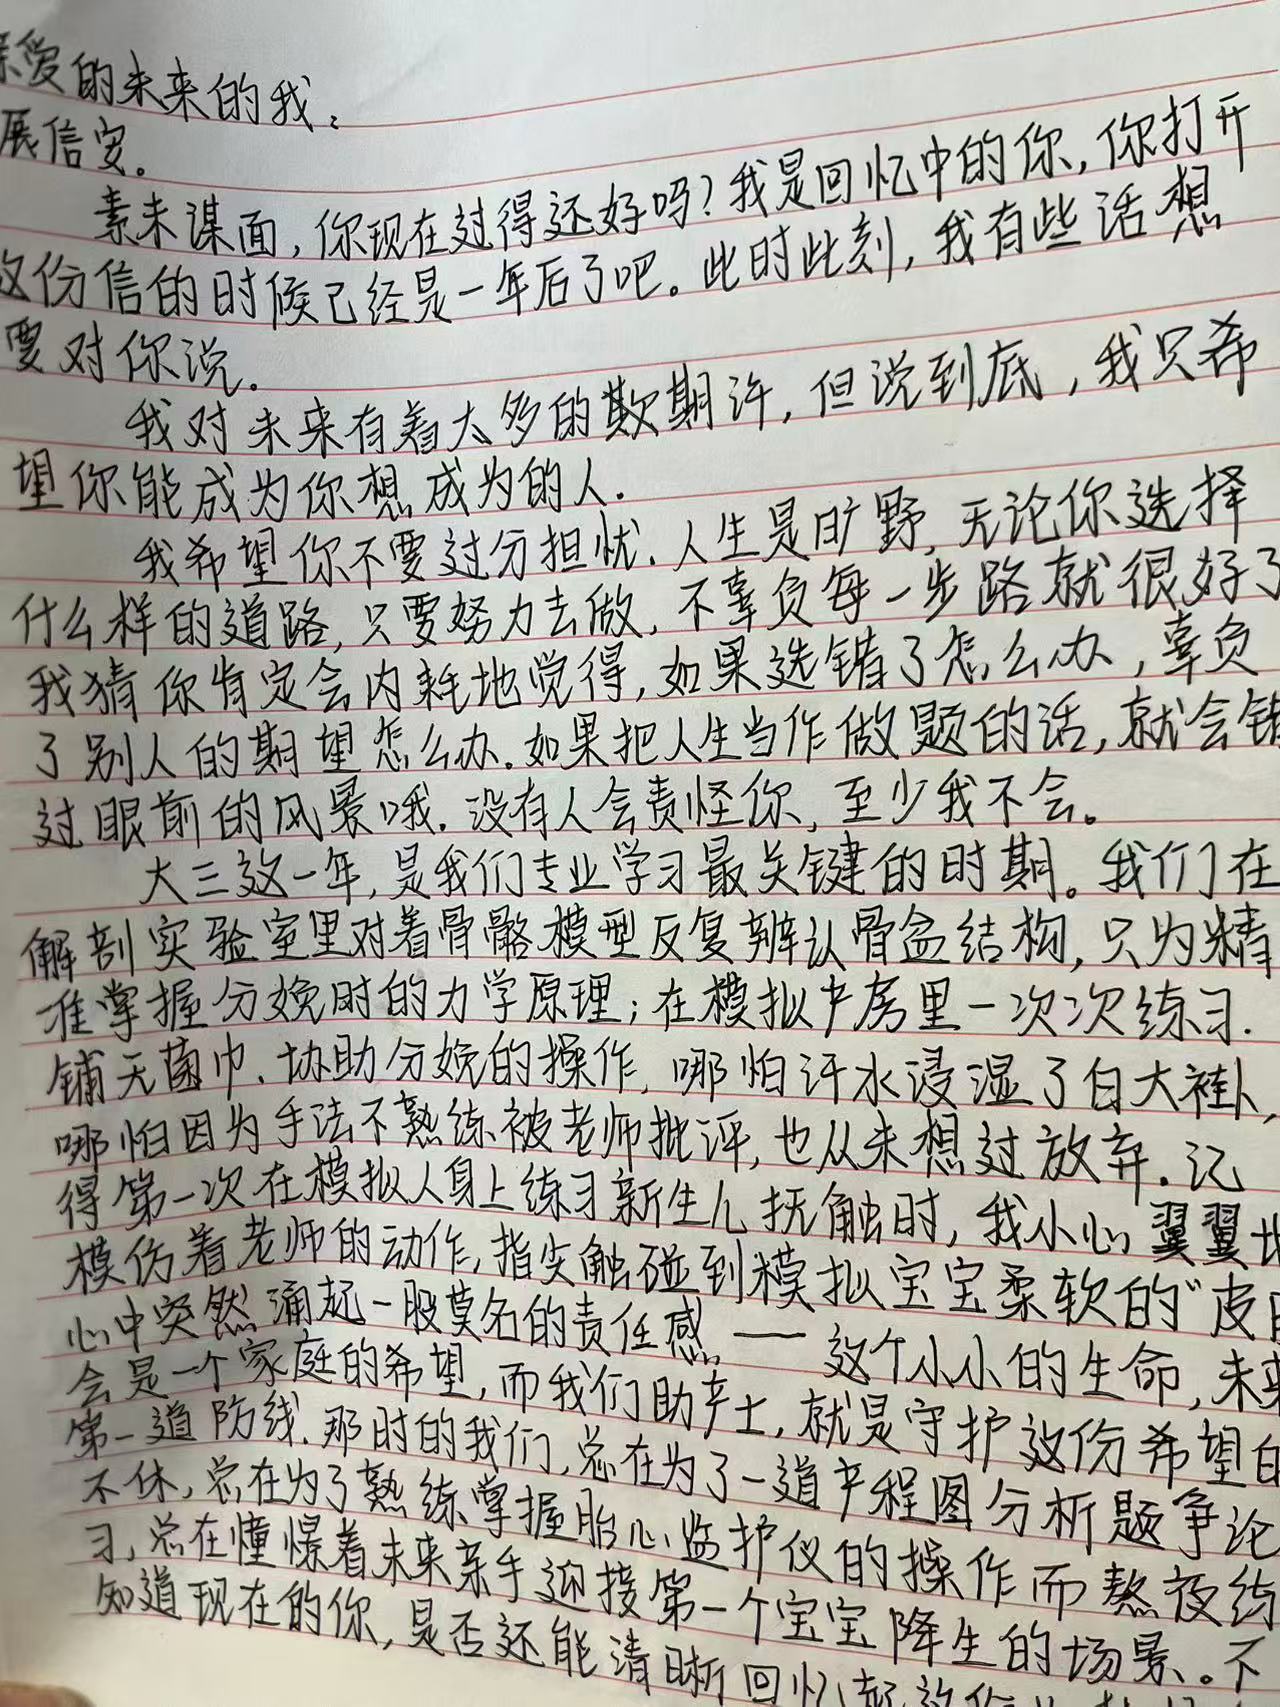 亲爱的未来的我：
展信安。
素未谋面，你现在过得还好吗？我是回忆中的你，你打开
这份信的时候已经是一年后了吧。此时此刻，我有些话想
要对你说。
我对未来有着太多的期许，但说到底，我只希
望你能成为你想成为的人.
我希望你不要过分担忧.人生是旷野,无论你选择
什么样的道路,只要努力去做,不辜负每一步路就很好了
我猜你肯定会内耗地觉得,如果选错了怎么办,辜负
了别人的期望怎么办.如果把人生当作做题的话,就会错
过眼前的风景哦.没有人会责怪你,至少我不会。
大三这一年,是我们专业学习最关键的时期。我们在
解剖实验室里对着骨骼模型反复辨认骨盆结构,只为精
准掌握分娩时的力学原理;在模拟产房里一次次练习.
铺无菌巾.协助分娩的操作,哪怕汗水浸湿了白大褂,
哪怕因为手法不熟练被老师批评,也从未想过放弃.记
得第一次在模拟人身上练习新生儿抚触时,我小心翼翼地
模仿着老师的动作,指尖触碰到模拟宝宝柔软的"皮
心中突然涌起一股莫名的责任感——这个小小的生命,未来
会是一个家庭的希望,而我们助产士,就是守护这份希望的
第一道防线.那时的我们,总在为了一道产程图分析题争论
不休,总在为了熟练掌握胎心监护仪的操作而熬夜练
习,总在憧憬着未来亲手迎接第一个宝宝降生的场景。不
知道现在的你,是否还能清晰回忆起这份